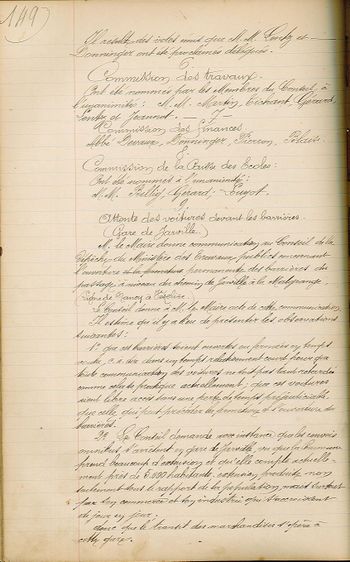 149
Il résulte des votes émis que M.M. Lentz et
Donninger ont été proclamés délégués.
6
Commission des travaux.
Ont été nommés par les Membres du Conseil, à
l'unanimité : M.M. Martin, Gérard,
Lentz et Jeannot. — 7 —
Commission des Finances
Abbé Donninger, Pierron,
8
Commission de la Caisse des Ecoles :
Ont été nommés à l'unanimité :
M.M. Gérard, Guyot.
9
Attente des voitures devant les barrières.
(Gare de Jarville).
M. le Maire donne communication au Conseil de la
dépêche du Ministre des Travaux publics concernant
l'ouverture et la fermeture permanente des barrières du
passage à niveau du chemin de Jarville à la Malgrange.
(Ligne de Nancy à
Le Conseil donne à M. le Maire acte de cette communication
Il estime qu'il y a lieu de présenter les observations
suivantes :
1° que ces barrières soient ouvertes en
c. à. dire dans un temps relativement court pour que
toute communication des voitures ne soit pas tant retardée
comme cela se pratique actuellement ; que ces voitures
aient libre accès sans une perte de temps préjudiciable,
que celle qui peut précéder la fermeture et l'ouverture des
barrières.
2° Le Conseil demande avec instance que les convois
omnibus s'arrêtent en gare de Jarville, vu que la commune
prend beaucoup d'extension et qu'elle compte actuelle-
ment près de 6.000 habitants,
seulement sous le rapport de la population mais surtout
par son commerce et son industrie qui s'accroissent
de jour en jour.
donc que le transit des marchandises s'opère à
cette gare.